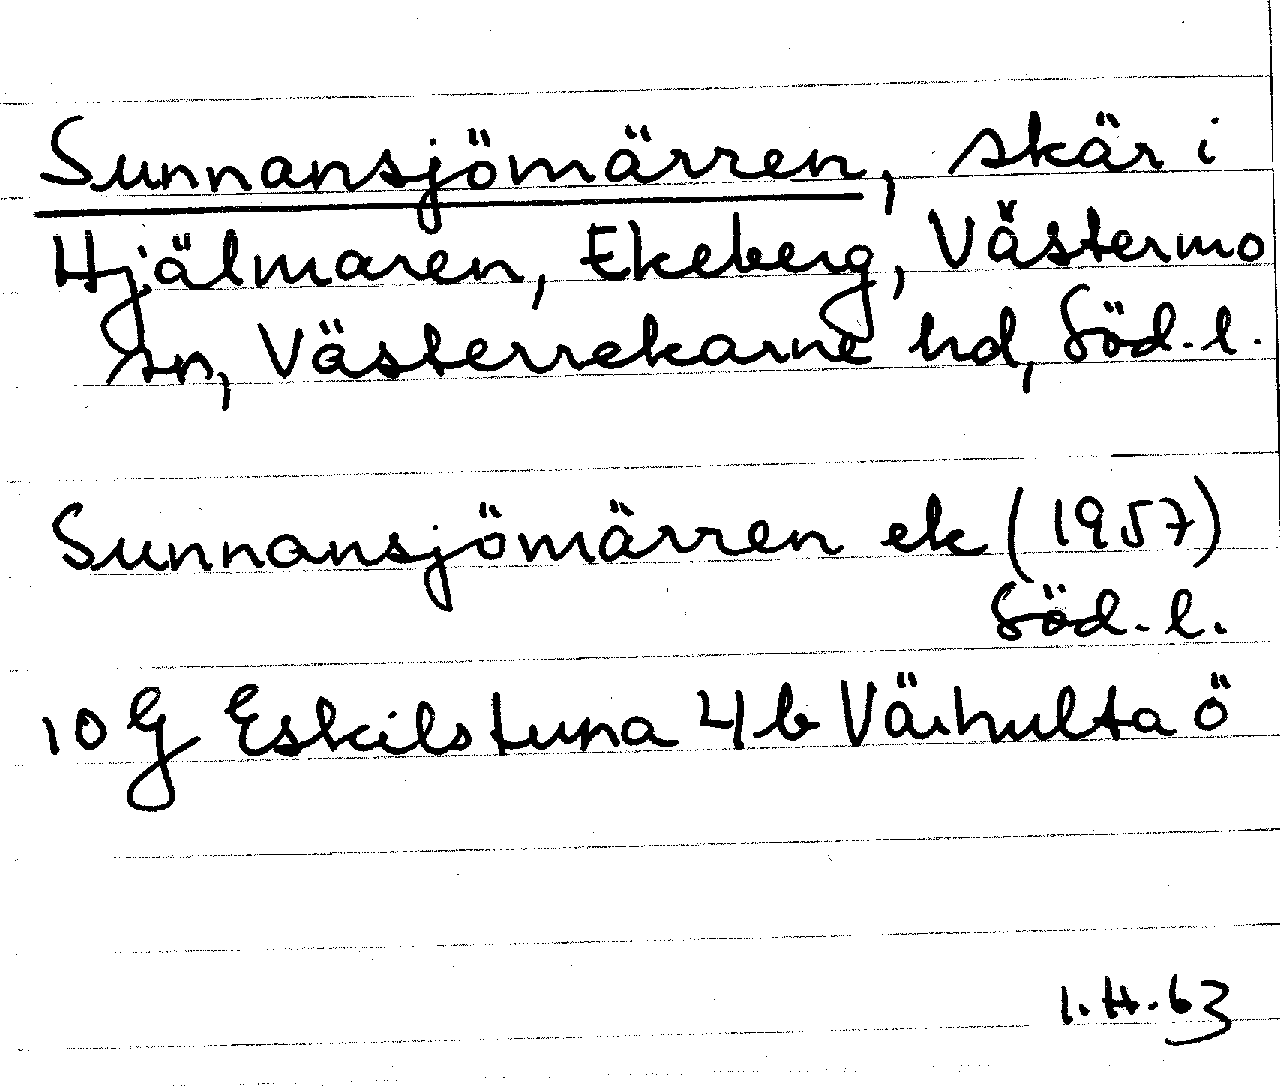 Sunnansjömärren, skär i
Hjälmaren, Ekeberg, Västermo
sn, Västerrekarne hd, Söd. l.
Sunnansjömärren ek (1957)
Söd. l.
10 G Eskilstuna 4 b Väihulta ö
I. H. 63